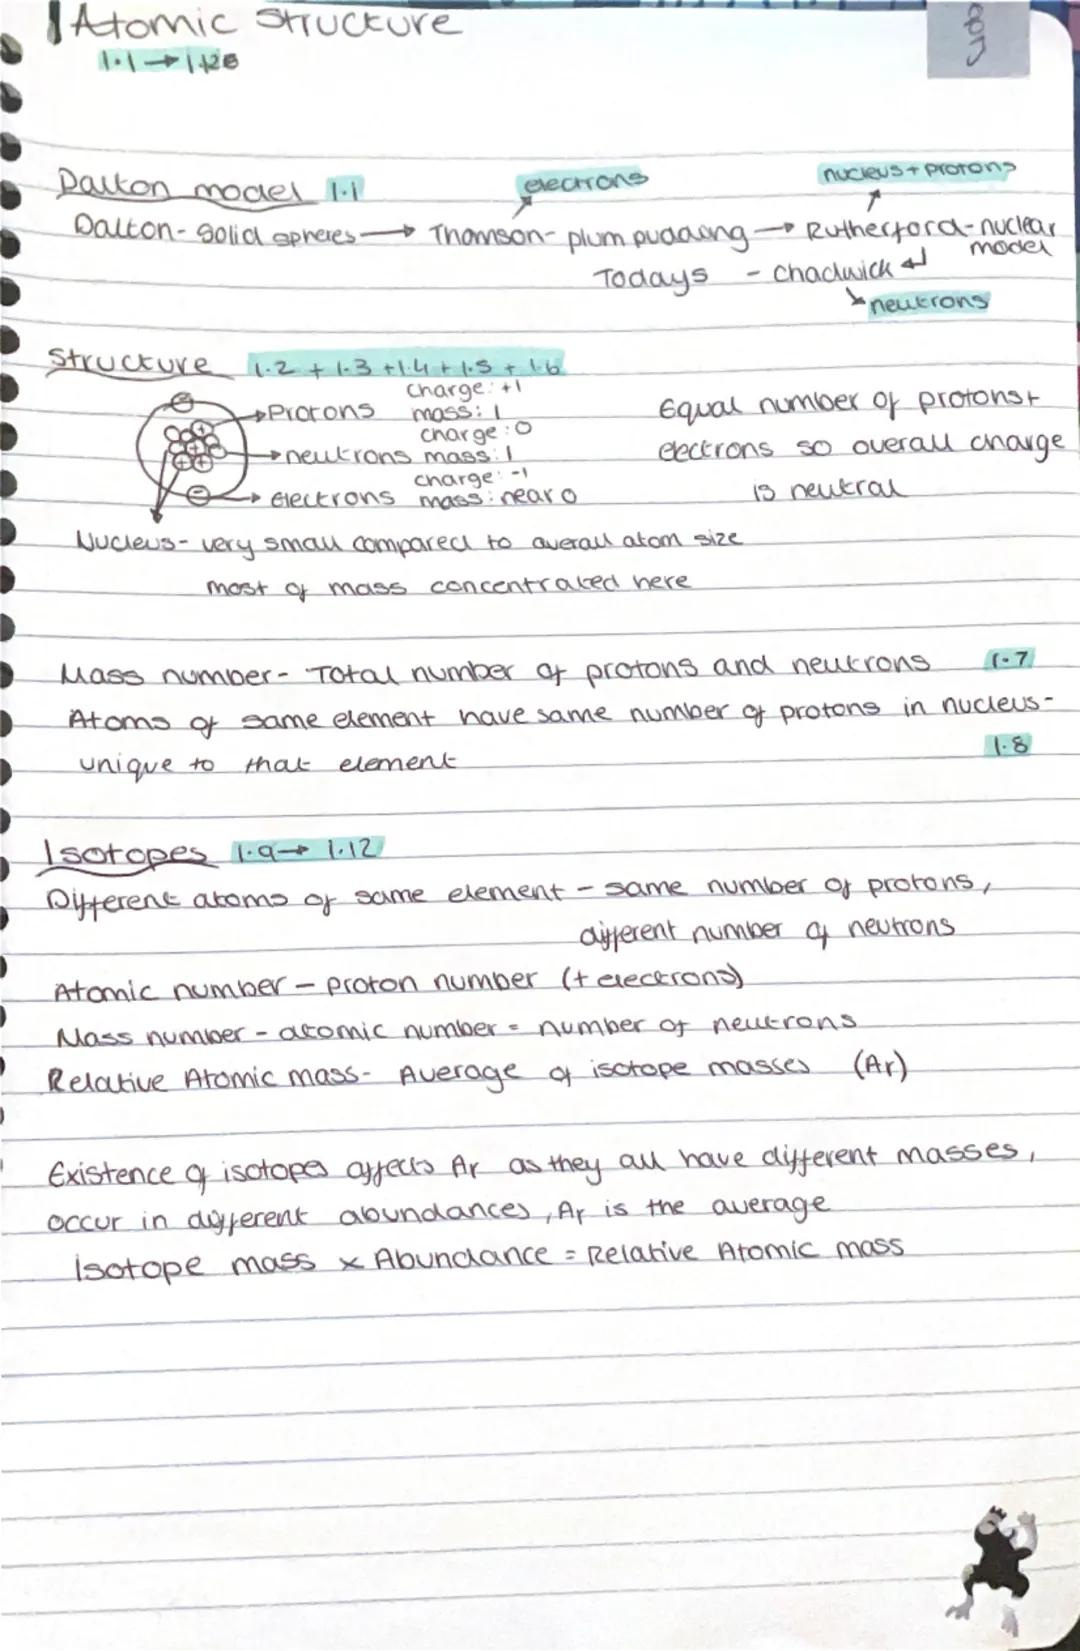 Atomic Structure
1.1 → 1.12
Dalton model 1.1
electrons
nucleus + protons
Dalton - Solid spheres → Thomson - plum pudding → Rutherford - nuclear model
Todays - Chadwick
neutrons
Structure 1.2 + 1.3 + 1.4 + 1.5 + 1.6
charge: +1
Protons mass: 1
charge: 0
neutrons mass: 1
charge: -1
Electrons mass: near 0
Equal number of protons +
electrons so overall charge
is neutral
Nucleus - very small compared to overall atom size
most of mass concentrated here
Mass number - Total number of protons and neutrons 1.7
Atoms of same element have same number of protons in nucleus -
unique to that element 1.8
Isotopes 1.9 → 1.12
Different atoms of same element - same number of protons,
different number of neutrons
Atomic number - proton number (+ electrons)
Mass number - atomic number = number of neutrons
Relative Atomic mass - Average of isotope masses (Ar)
Existence of isotopes affects Ar as they all have different masses,
occur in different abundances, Ar is the average
Isotope mass x Abundance = Relative Atomic mass